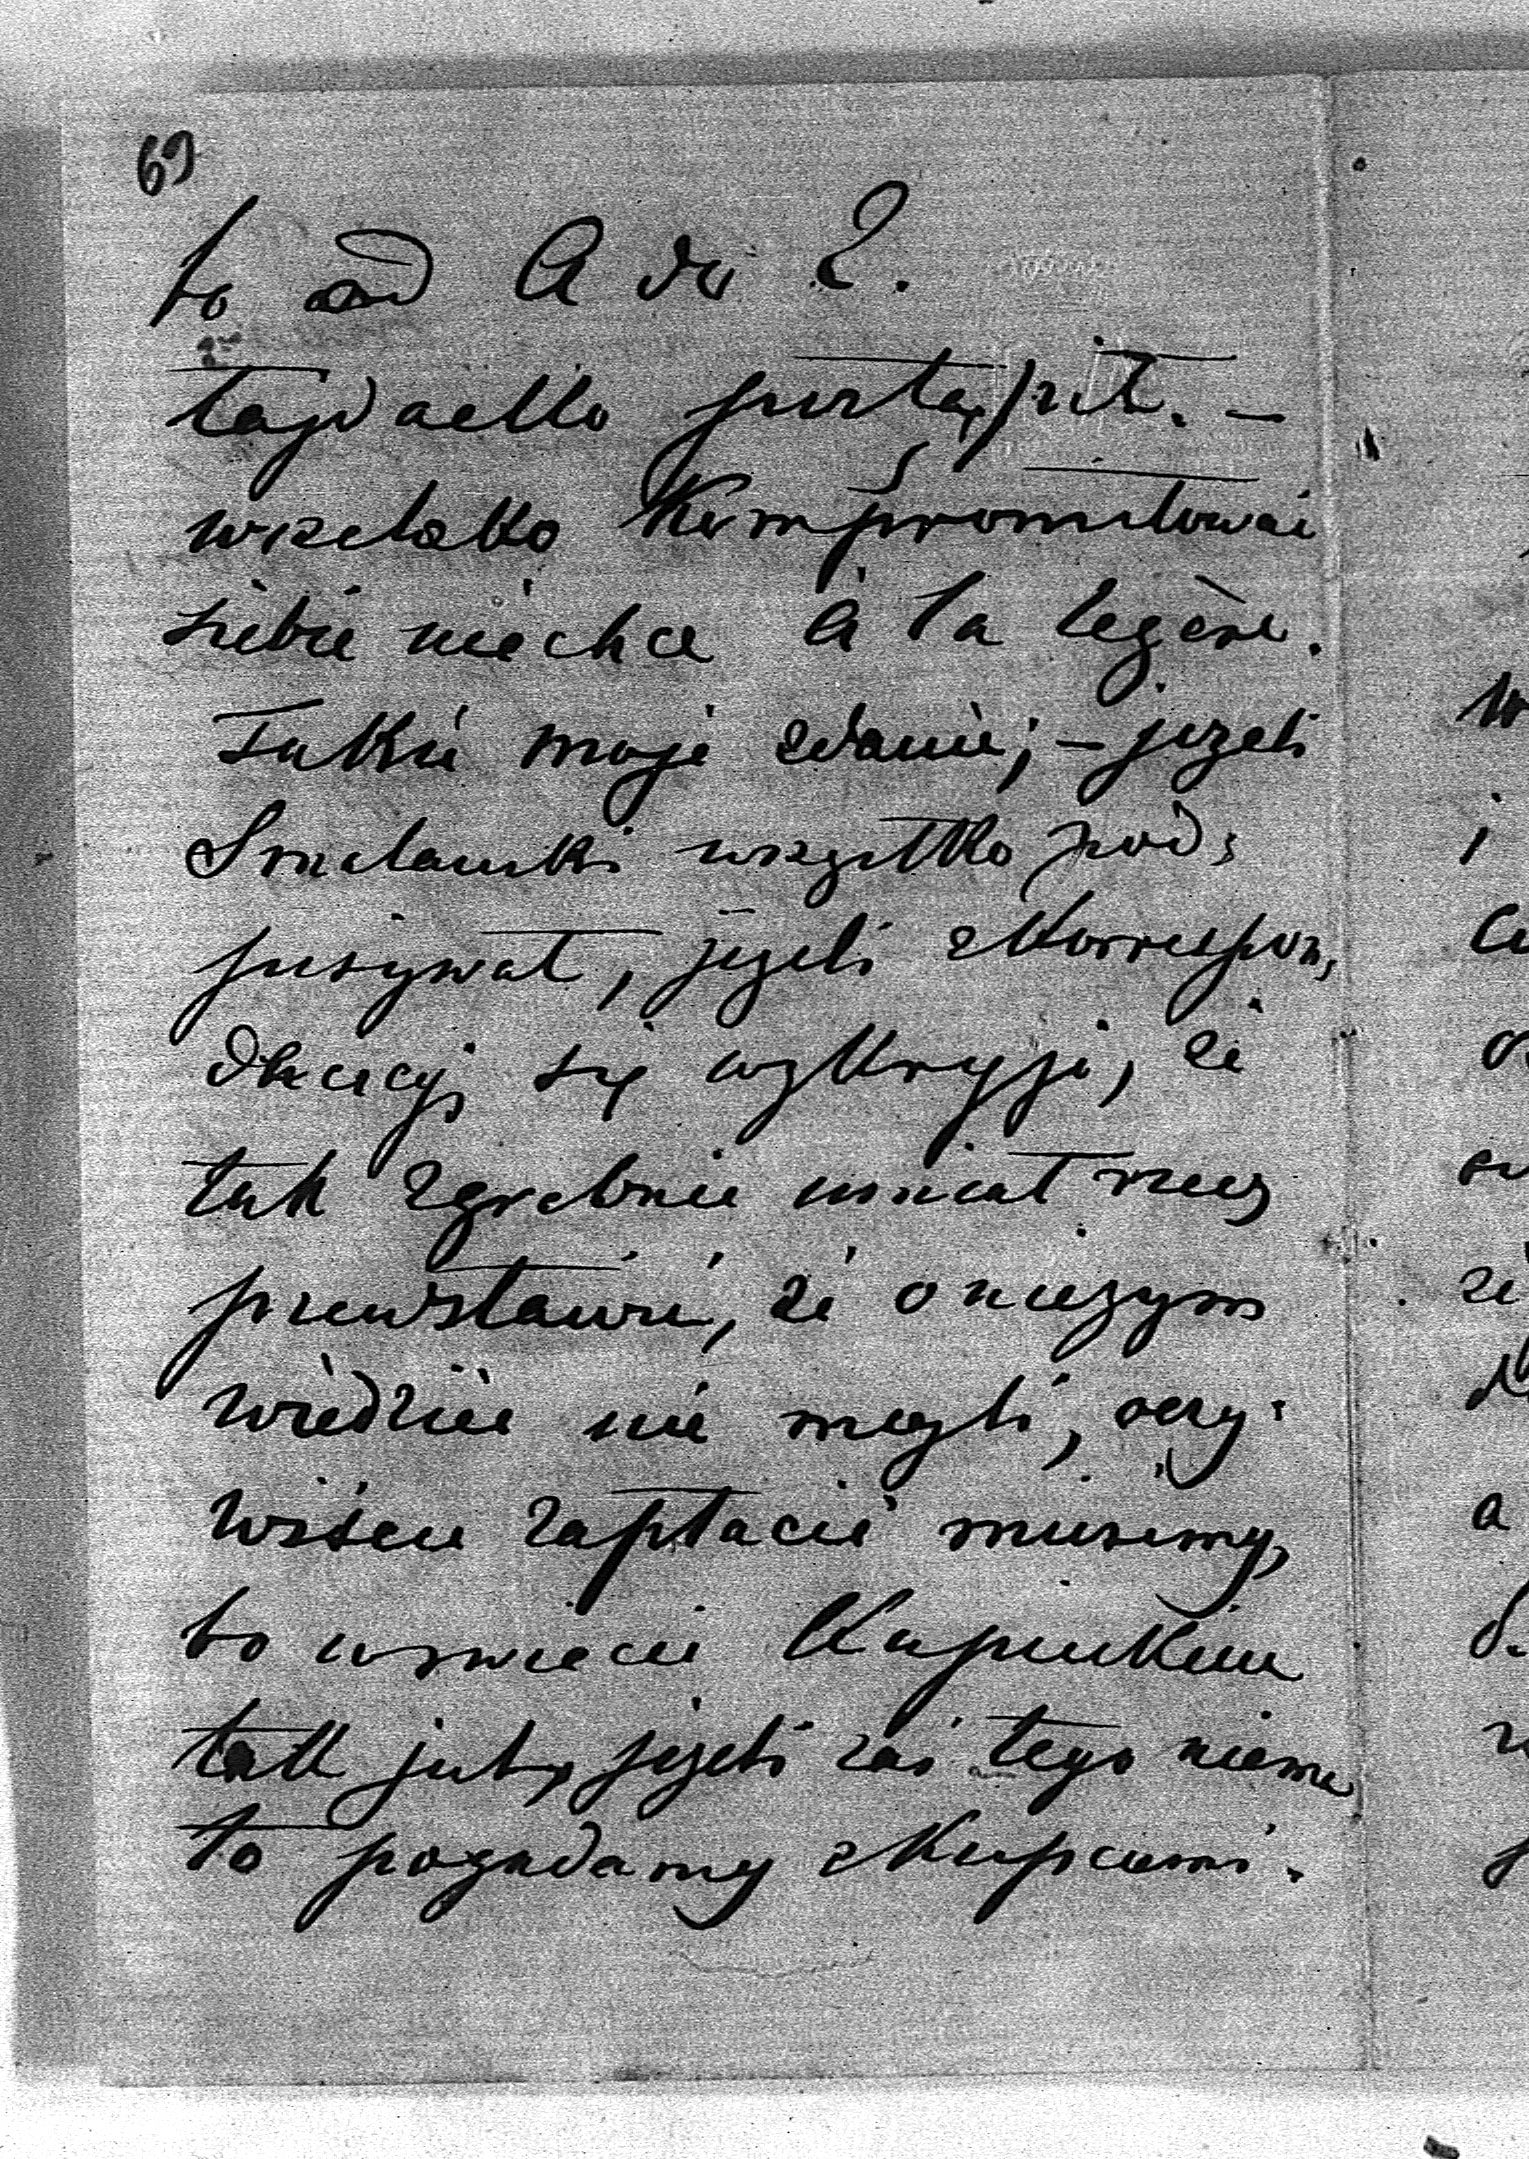 69
to od A do Z.
łajdacko postąpił. —
wszelako kompromitować
siebie niechce à la legère.
Takie moje zdanie; — jeżeli
Smelawski wszystko pod=
pisywał, jeżeli zkorrespon=
dencyj się wykryje, że
tak zgrabnie umiał rzecz
przedstawić, że oniczym
wiedzieć nie mogli, oczy=
wiście zapłacić musiemy,
bo wświecie kupieckim
tak jest, jeżeli zaś tego niema
to pogadamy zkupcami.